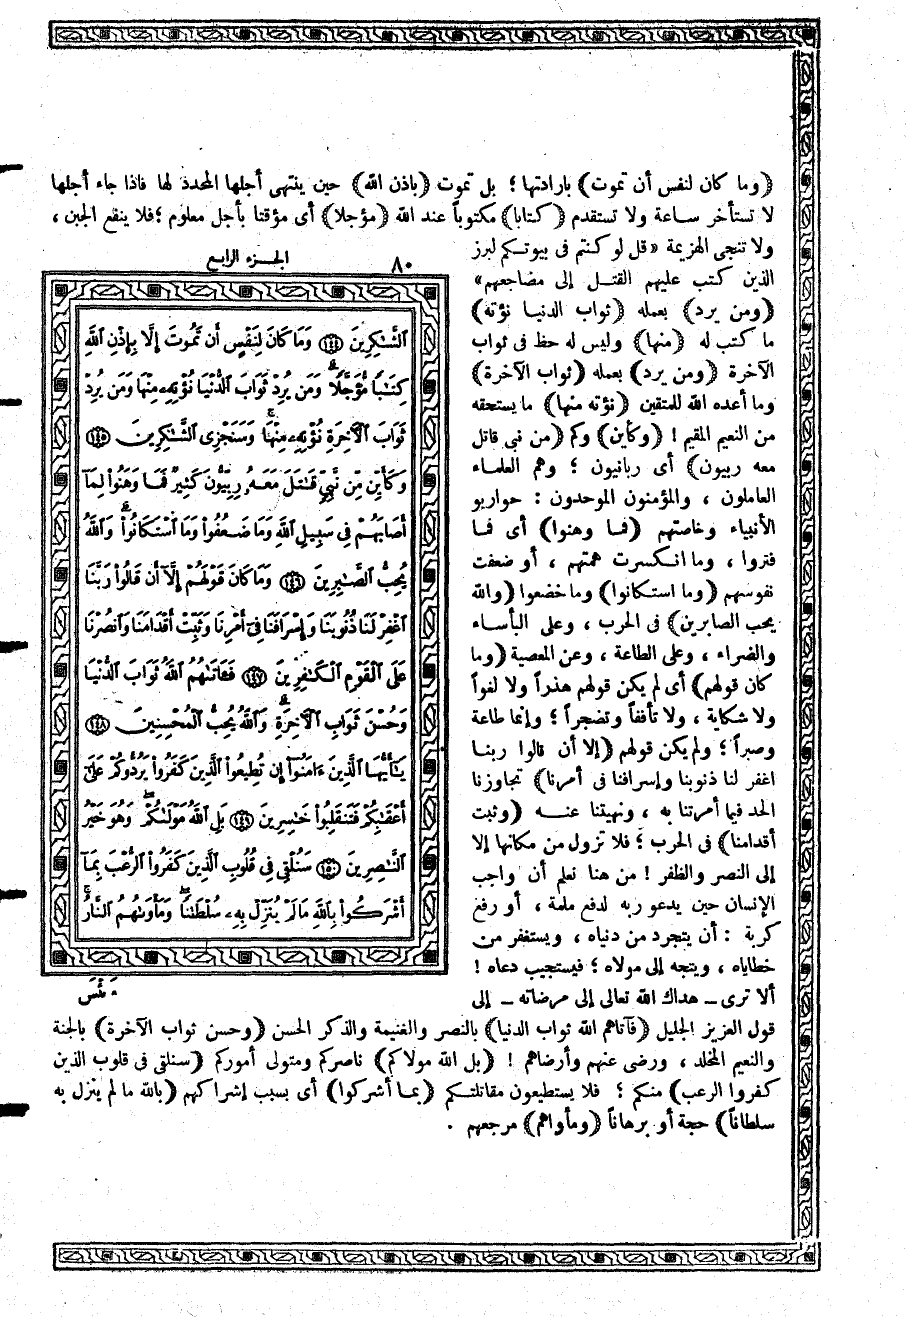 (وما كان لنفس أن تموت) بارادتها ؛ بل تموت (باذن الله) حين ينتهى أجلها المحدد لها فاذا جاء أجلها
لا تستأخر ساعة ولا تستقدم (كتابا) مكتوباً عند الله (مؤجلا) أى مؤقتا بأجل معلوم ؛ فلا ينفع الجبن ،
ولا تنجى الهزيمة «قل لو كنتم فى بيوتكم لبرز
الذين كتب عليهم القتل إلى مضاجعهم»
(ومن يرد) بعمله (ثواب الدنيا نؤته)
ما كتب له (منها) وليس له حظ فى ثواب
الآخرة (ومن يرد) بعمله (ثواب الآخرة)
وما أعده الله للمتقين (نؤته منها) ما يستحقه
من النعيم المقيم ! (وكأين) وكم (من نبى قاتل
معه ربيون) أى ربانيون ؛ وهم العلماء
العاملون ، والمؤمنون الموحدون : حواريو
الأنبياء وخاصتهم (فما وهنوا) أى فما
فتروا ، وما انكسرت همتهم ، أو ضعفت
نفوسهم (وما استكانوا) وما خضعوا (والله
يحب الصابرين) فى الحرب ، وعلى البأساء
والضراء ، وعلى الطاعة ، وعن المعصية (وما
كان قولهم) أى لم يكن قولهم هذراً ولا لغواً
ولا شكاية ، ولا تأففاً وتضجراً ؛ وإنما طاعة
وصبراً ؛ ولم يكن قولهم (إلا أن قالوا ربنا
اغفر لنا ذنوبنا وإسرافنا فى أمرنا) تجاوزنا
الحد فيما أمرتنا به ، ونهيتنا عنه (وثبت
أقدامنا) فى الحرب ؛ فلا تزول من مكانها إلا
إلى النصر والظفر ! من هنا نعلم أن واجب
الإنسان حين يدعو ربه لدفع ملمة ، أو رفع
كربة : أن يتجرد من دنياه ، ويستغفر من
خطاياه ، ويتجه إلى مولاه ؛ فيستجيب دعاه !
ألا ترى ــ هداك الله تعالى إلى مرضاته ــ إلى
قول العزيز الجليل (فآتاهم الله ثواب الدنيا) بالنصر والغنيمة والذكر الحسن (وحسن ثواب الآخرة) بالجنة
والنعيم المخلد ، ورضى عنهم وأرضاهم ! (بل الله مولاكم) ناصركم ومتولى أموركم (سنلقى فى قلوب الذين
كفروا الرعب) منكم ؛ فلا يستطيعون مقاتلتكم (بما أشركوا) أى بسبب إشراكهم (بالله ما لم ينزل به
سلطاناً) حجة أو برهاناً (ومأواهم) مرجعهم .
٨٠ الجزء الرابع
ٱلشَّـٰكِرِينَ ١٤٤ وَمَا كَانَ لِنَفْسٍ أَن تَمُوتَ إِلَّا بِإِذْنِ ٱللَّهِ
كِتَـٰبًا مُّؤَجَّلًا ۗ وَمَن يُرِدْ ثَوَابَ ٱلدُّنْيَا نُؤْتِهِۦ مِنْهَا وَمَن يُرِدْ
ثَوَابَ ٱلْآخِرَةِ نُؤْتِهِۦ مِنْهَا ۚ وَسَنَجْزِى ٱلشَّـٰكِرِينَ ١٤٥
وَكَأَيِّن مِّن نَّبِىٍّ قَـٰتَلَ مَعَهُۥ رِبِّيُّونَ كَثِيرٌ فَمَا وَهَنُوا۟ لِمَآ
أَصَابَهُمْ فِى سَبِيلِ ٱللَّهِ وَمَا ضَعُفُوا۟ وَمَا ٱسْتَكَانُوا۟ ۗ وَٱللَّهُ
يُحِبُّ ٱلصَّـٰبِرِينَ ١٤٦ وَمَا كَانَ قَوْلَهُمْ إِلَّآ أَن قَالُوا۟ رَبَّنَا
ٱغْفِرْ لَنَا ذُنُوبَنَا وَإِسْرَافَنَا فِىٓ أَمْرِنَا وَثَبِّتْ أَقْدَامَنَا وَٱنصُرْنَا
عَلَى ٱلْقَوْمِ ٱلْكَـٰفِرِينَ ١٤٧ فَـَٔاتَىٰهُمُ ٱللَّهُ ثَوَابَ ٱلدُّنْيَا
وَحُسْنَ ثَوَابِ ٱلْآخِرَةِ ۗ وَٱللَّهُ يُحِبُّ ٱلْمُحْسِنِينَ ١٤٨
يَـٰٓأَيُّهَا ٱلَّذِينَ ءَامَنُوٓا۟ إِن تُطِيعُوا۟ ٱلَّذِينَ كَفَرُوا۟ يَرُدُّوكُمْ عَلَىٰٓ
أَعْقَـٰبِكُمْ فَتَنقَلِبُوا۟ خَـٰسِرِينَ ١٤٩ بَلِ ٱللَّهُ مَوْلَىٰكُمْ ۖ وَهُوَ خَيْرُ
ٱلنَّـٰصِرِينَ ١٥٠ سَنُلْقِى فِى قُلُوبِ ٱلَّذِينَ كَفَرُوا۟ ٱلرُّعْبَ بِمَآ
أَشْرَكُوا۟ بِٱللَّهِ مَا لَمْ يُنَزِّلْ بِهِۦ سُلْطَـٰنًا ۖ وَمَأْوَىٰهُمُ ٱلنَّارُ ۚ